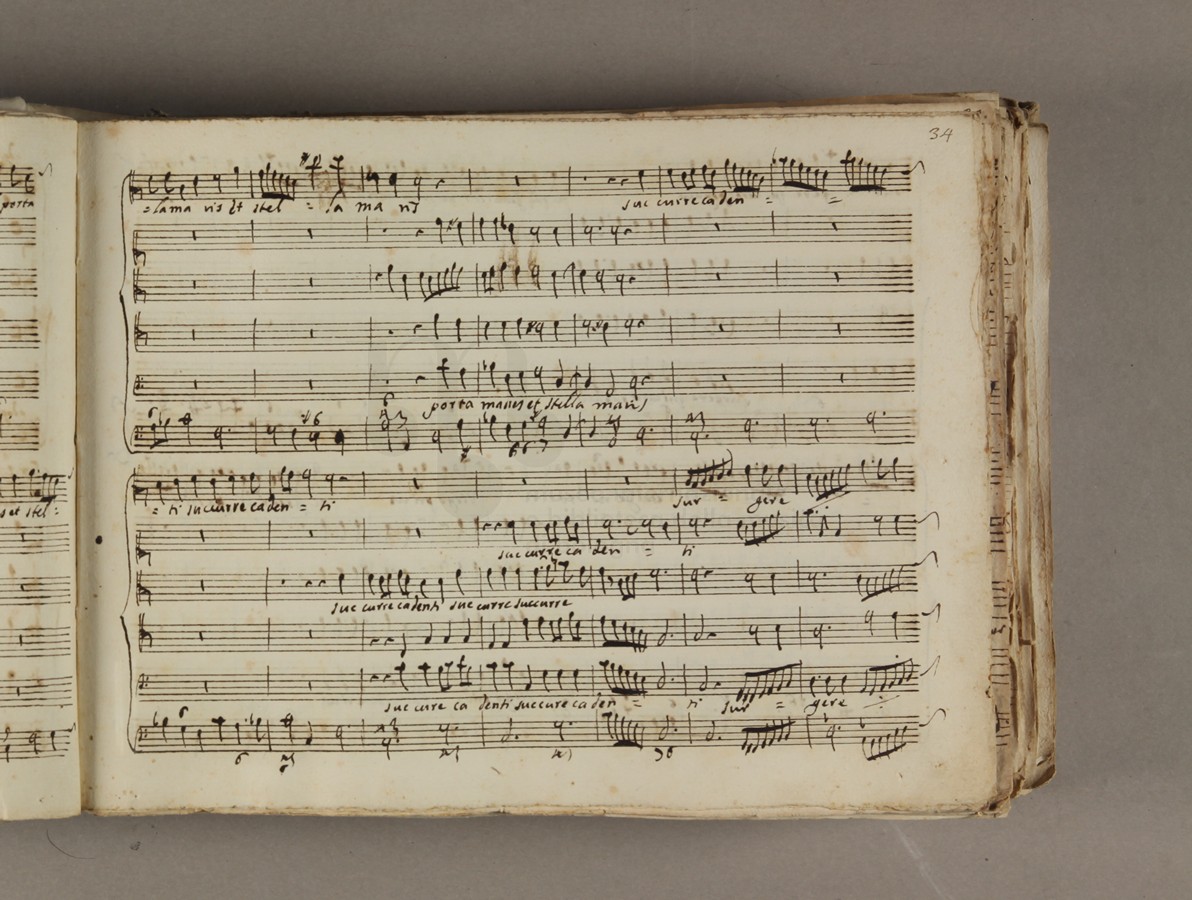 34
porta
= lama ris Et stel = la ma ris
succurre caden = =
porta manes et stella maris
6
6
6 6 7
s et stel =
= ti succurre caden = ti
sur = gere
succurre ca den = ti
succurre cadenti succurre succurre
succure ca denti succure caden = ti sur = gere
6